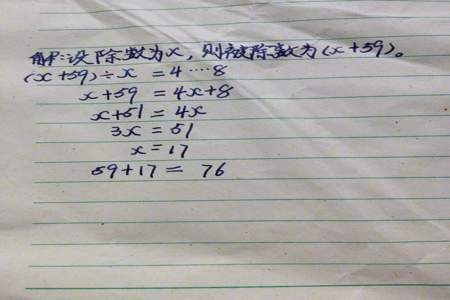 解:设除数为x，则被除数为(x+59)。
(x+59)÷x = 4····8
x+59 = 4x+8
x+51 = 4x
3x = 51
x = 17
59+17 = 76